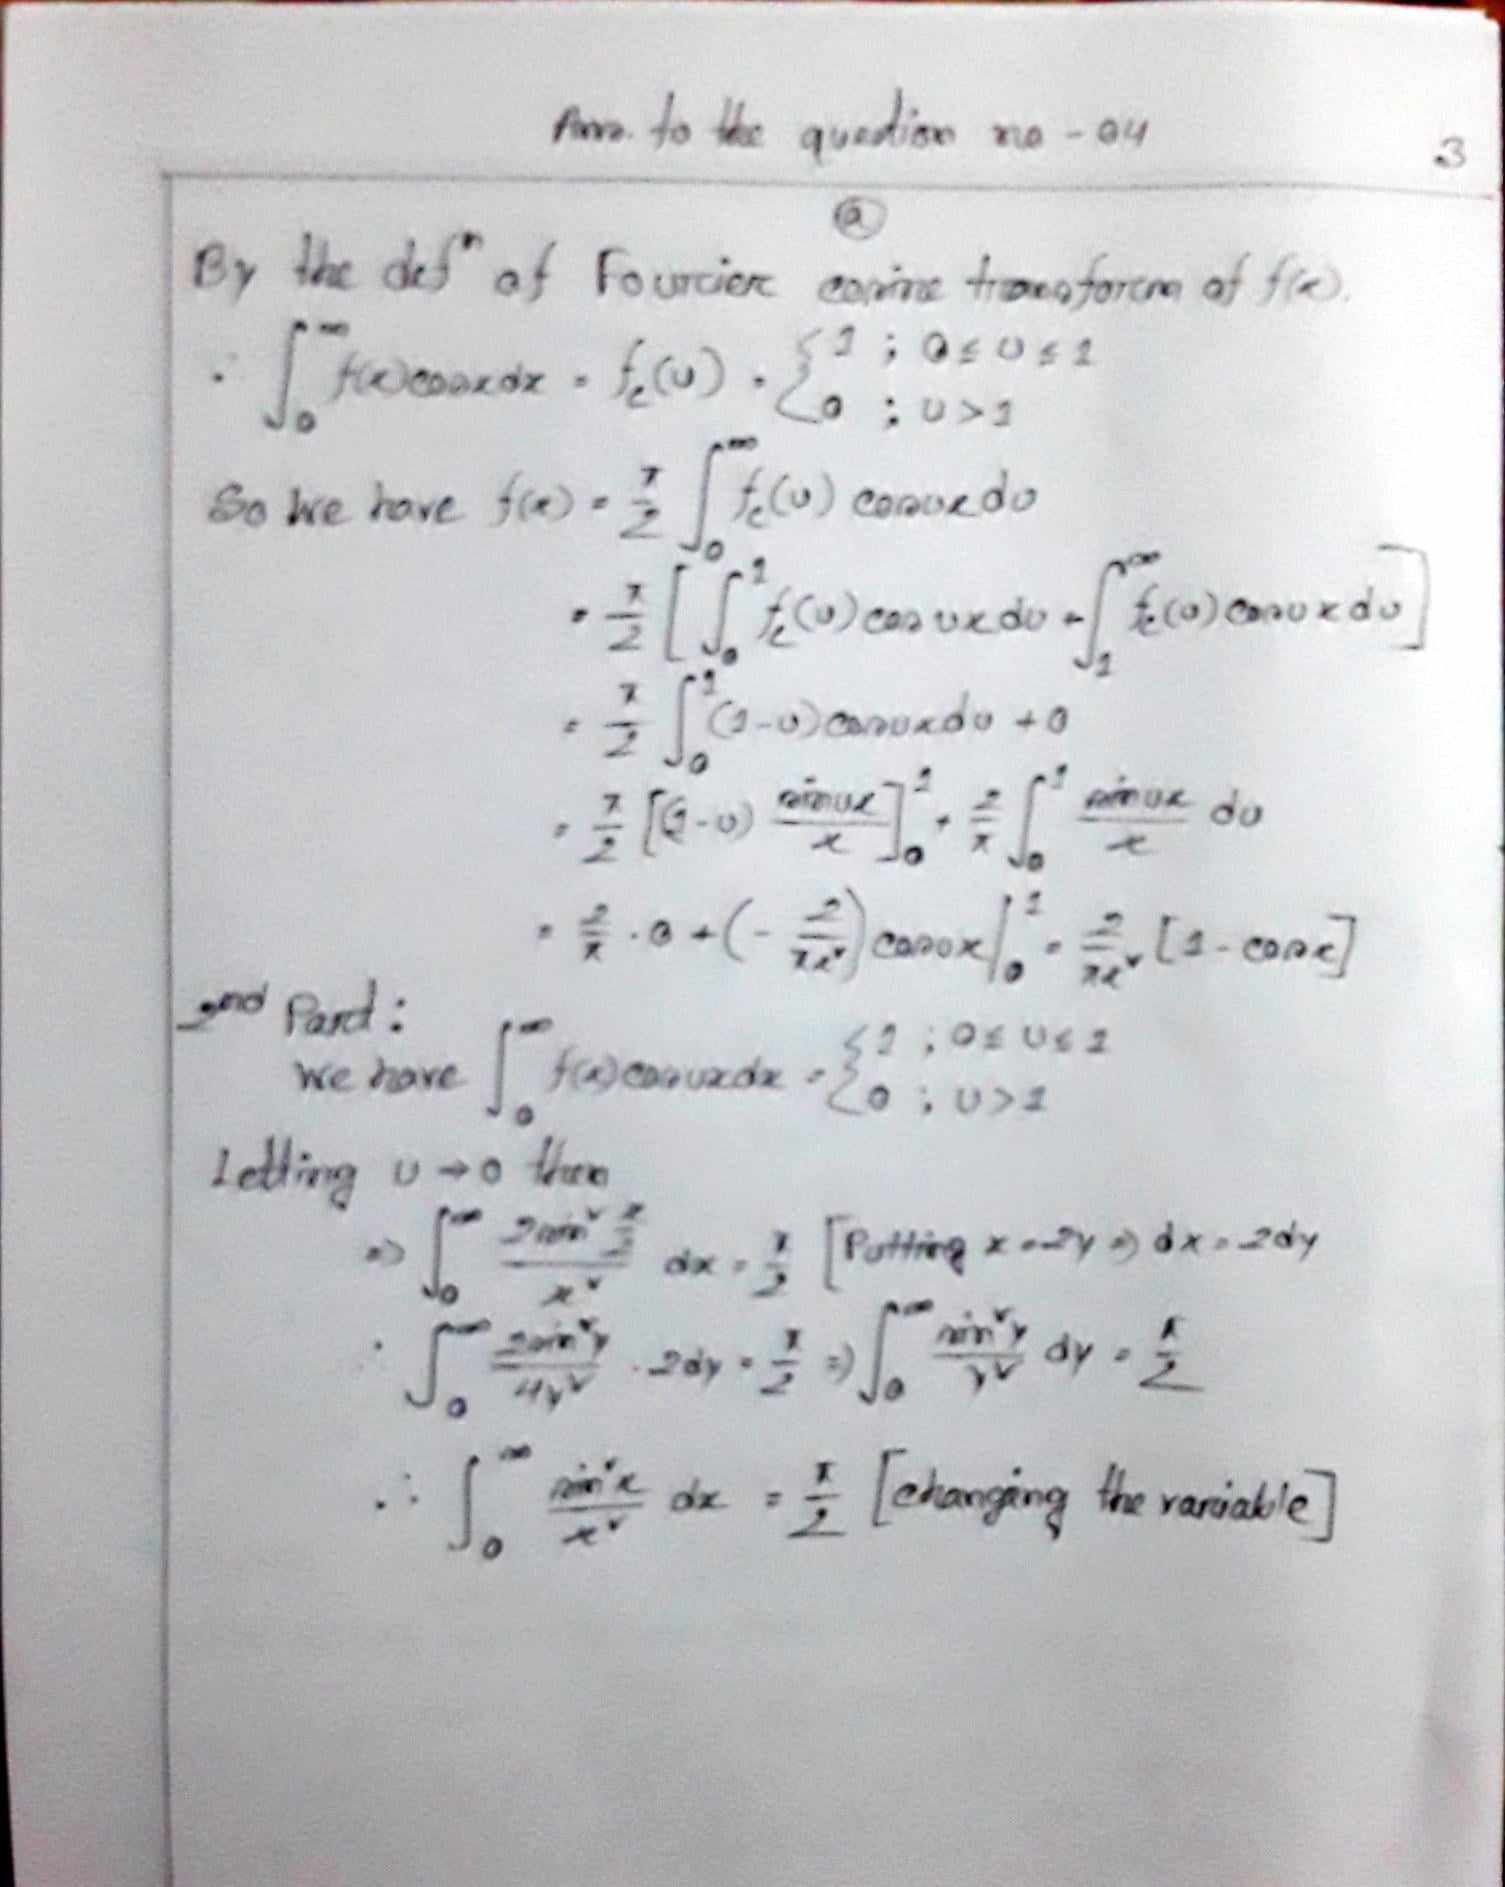 Ans. to the question no - 04
3
(a)
By the defⁿ of Fourier cosine transform of f(x).
∴ ∫₀^∞ f(x) cosx dx = f_c(u) = { 1 ; 0 ≤ u ≤ 1
0 ; u > 1
So we have f(x) = π/2 ∫₀^∞ f_c(u) cosux du
= π/2 [ ∫₀^1 f_c(u) cos ux du + ∫₁^∞ f_c(u) cosux du ]
= π/2 ∫₀^1 (1-u) cosux du + 0
= π/2 [(1-u) sinux/x]₀^1 + 2/π ∫₀^1 sinux/x du
= 2/π . 0 + (- 2/πx²) cosux |₀^1 = 2/πx² [1 - cosx]
2nd Part :
We have ∫₀^∞ f(x) cosuxdx = { 1 ; 0 ≤ u ≤ 1
0 ; u > 1
Letting u → 0 then
⇒ ∫₀^∞ 2sin² x/2 / x² dx = π/2 [Putting x = 2y ⇒ dx = 2dy
∴ ∫₀^∞ 2sin²y/4y² . 2dy = π/2 ⇒ ∫₀^∞ sin²y/y² dy = π/2
∴ ∫₀^∞ sin²x/x² dx = π/2 [changing the variable]